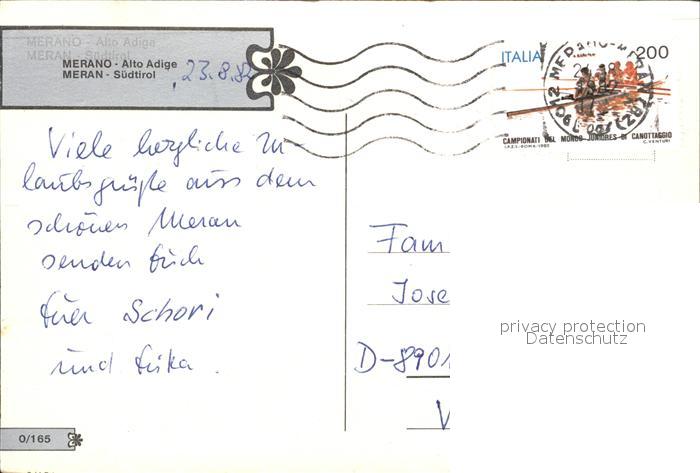 MERANO - Alto Adige
MERAN - Südtirol
MERANO - Alto Adige
MERAN - Südtirol
23.8.82
Viele herzliche Ur-
laubsgrüße aus dem
schönen Meran
senden Euch
Euer Schori
und Erika.
0/165
ITALIA
200
39012 MERANO-MERAN
CAMPIONATI DEL MONDO JUNIORES DI CANOTTAGGIO
I.P.Z.S.-ROMA-1982
C. VENTURI
Fam
Jose
D-8901
privacy protection
Datenschutz